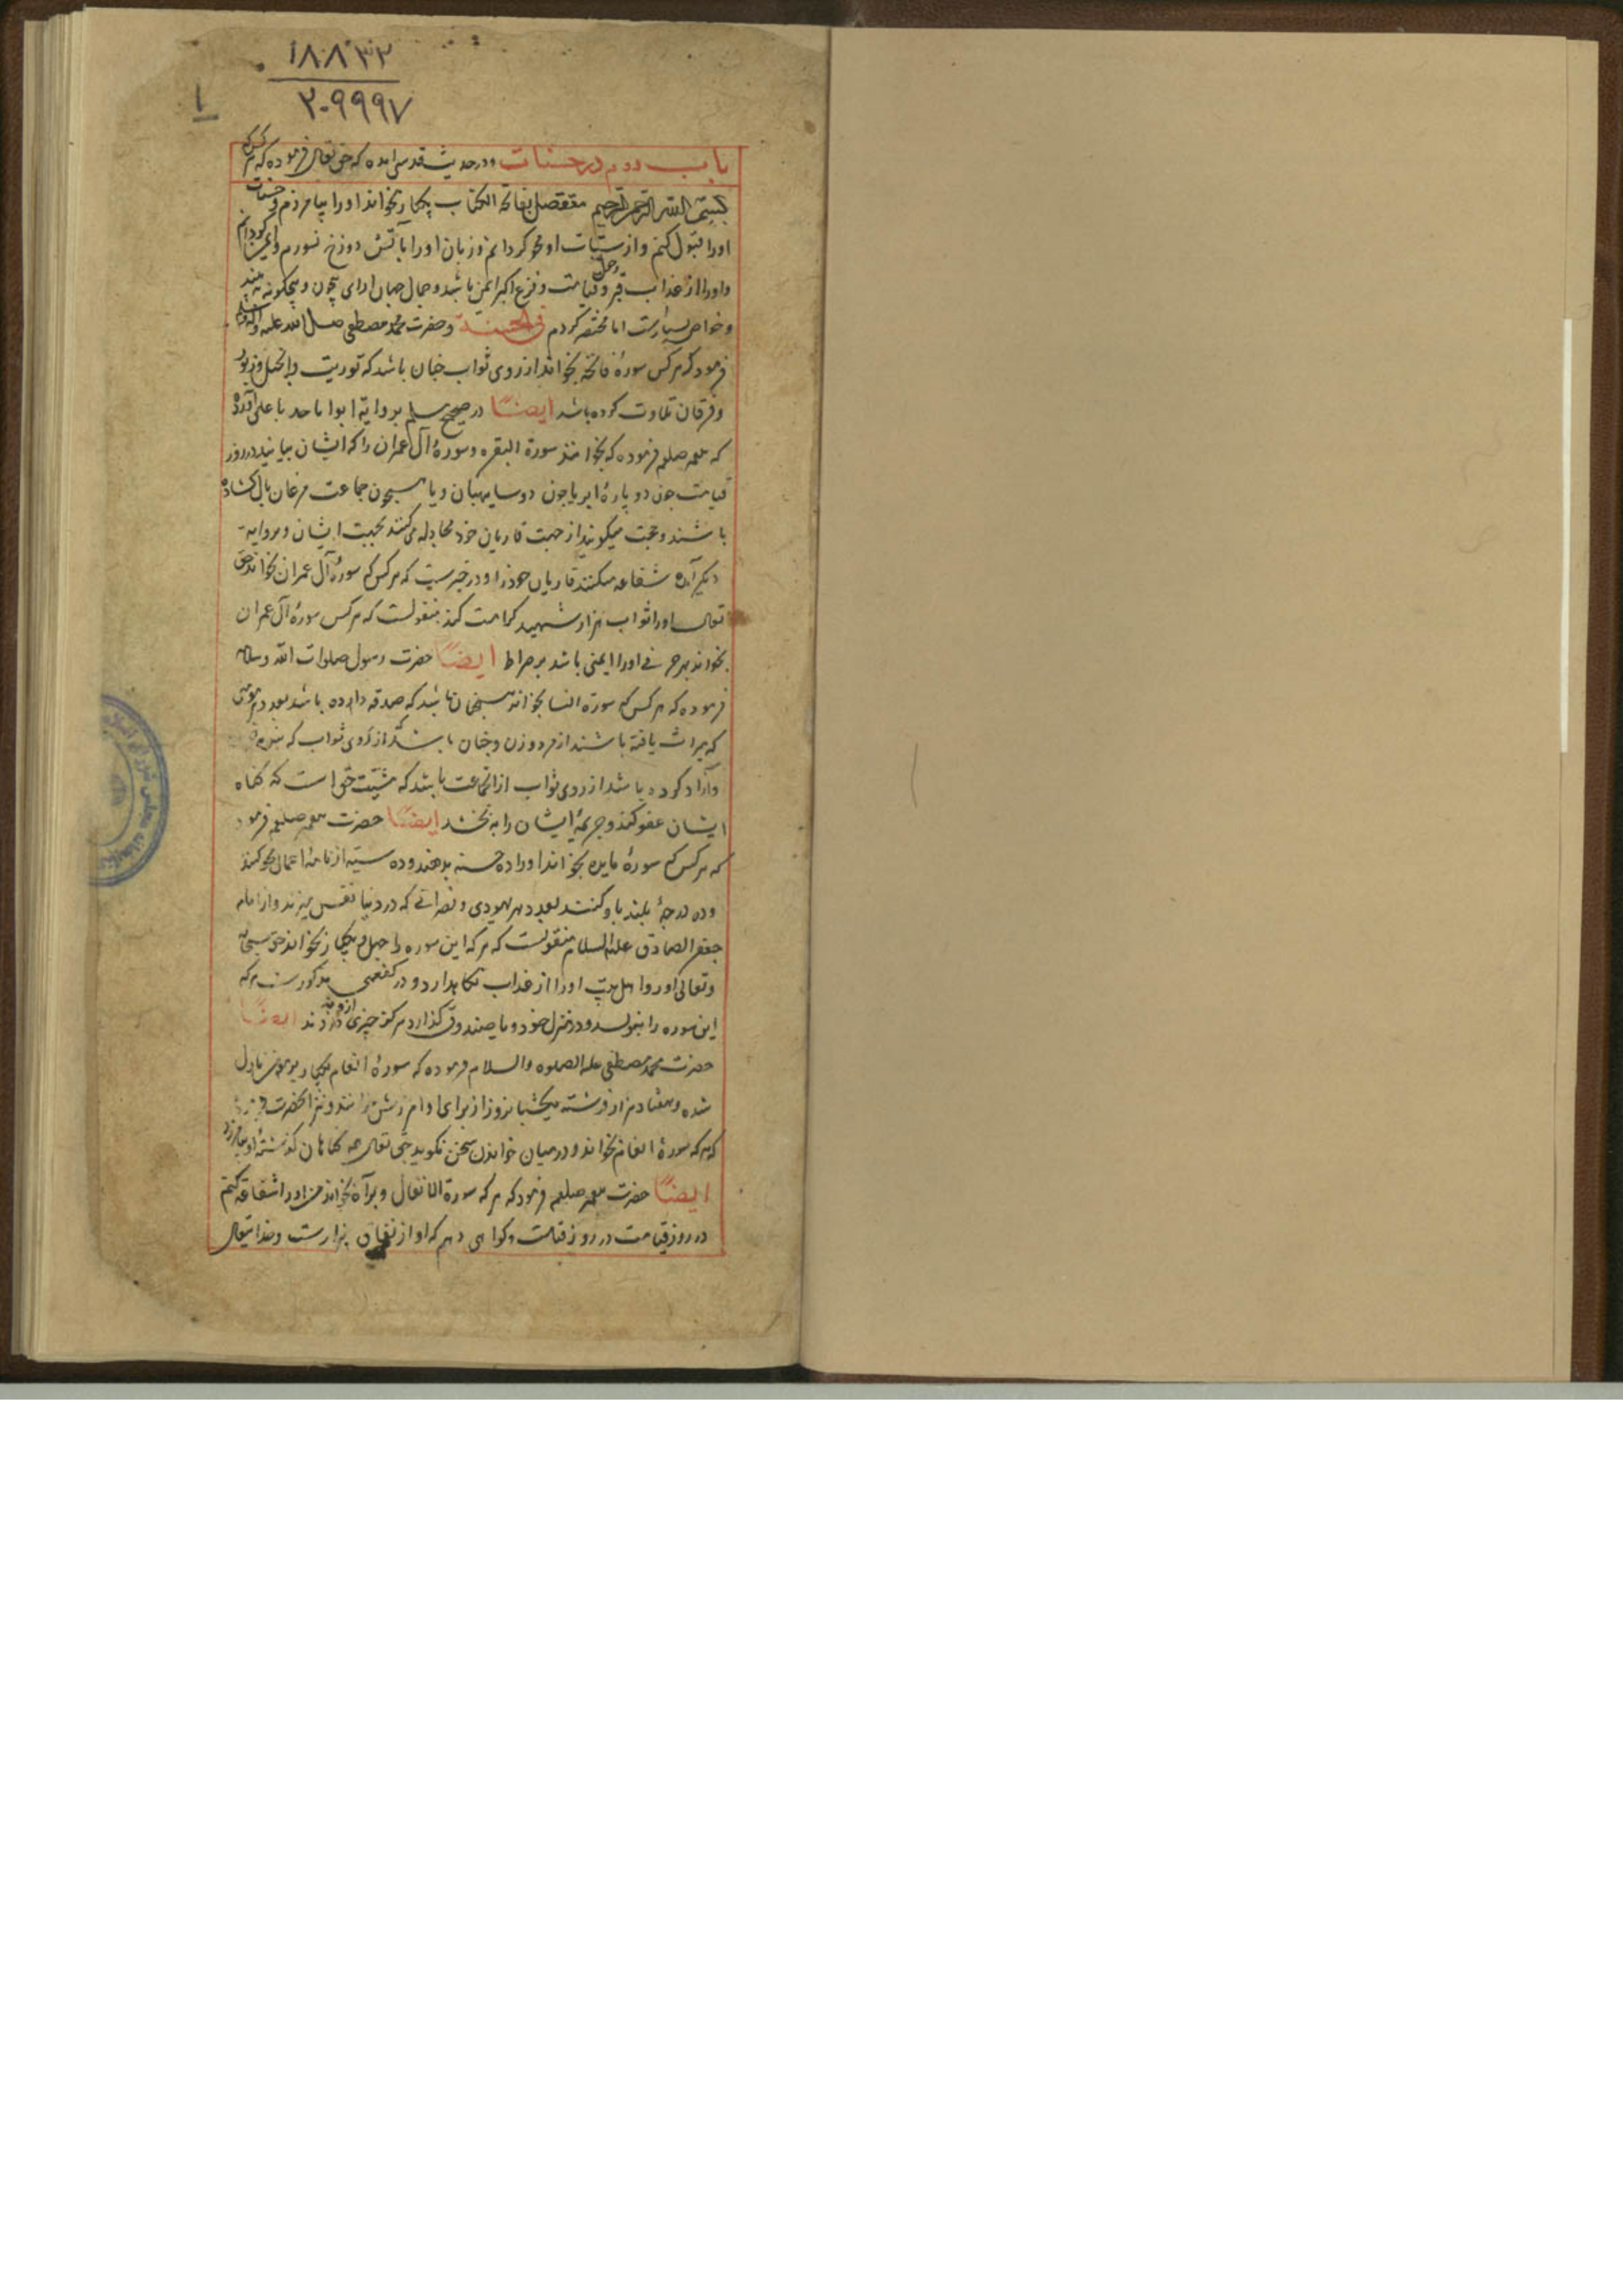 ۱۸۸۳۲
۲۰۹۹۹۷
۱
باب دوم در حسنات ودر حدیث قدسی امده که حق تعالی فرموده که هر کس که
بسم الله الرحمن الرحیم متصل بفاتحة الکتاب یکبار بخواند اورا بیامرزم وحسنات
اورا قبول کنم واز سیئات او محو کردانم وزبان اورا بآتش دوزخ نسوزم وایمن کردانم
واورا از عذاب قبر وقیامت وفزع اکبر ایمن باشد وجمال
وخواص بسیارست اما مختصر کردم فی الحسنه وحضرت محمد مصطفی صلی الله علیه وآله وسلم
فرمود که هر کس سورهٔ فاتحه بخواند از روی ثواب چنان باشد که توریت وانجیل وزبور
وفرقان تلاوت کرده باشد ایضًا در صحیح مسلم بروایة ابوا
که صلعم فرموده که بخوانند سورة البقره وسورهٔ آل عمران را که ایشان بیایند در روز
قیامت چون دو پارهٔ ابر یا چون دو سایه بان ویا همچون جماعت مرغان بال کشاده
باشند وحجت میکویند از جهت قاریان خود مجادله می کنند ایشان وبروایة
دیکر آمده شفاعه میکنند قاریان خود را ودر خبرست که هر کس که سورهٔ آل عمران بخواند حق
تعالی اورا ثواب هزار شهید کرامت کند منقولست که هر کس سورهٔ آل عمران
بخواند بهر حرفی اورا ایمنی باشد بر صراط ایضًا حضرت رسول صلوات الله وسلامه
فرموده که هر کس که سورة النسا بخواند همچنان باشد که صدقه داده باشد بعدد هر مومنی
که میراث یافته باشند از مرد وزن وچنان باشد از روی ثواب که بنده
وآزاد کرده باشد از روی ثواب از انجماعت باشد که مشیّت حق است که کناه
ایشان عفو کند وجریمهٔ ایشان را به بخشد ایضًا حضرت صلعم فرمود
که هر کس که سورهٔ مایده بخواند اورا ده حسنه بدهند وده سیئه از نامهٔ اعمال محو کنند
وده درجهٔ بلند باو کنند بعدد هر یهودی ونصرانی که در دنیا نفس میزند واز امام
جعفر الصادق علیه السلام منقولست که هر که این سوره را چهل ویکبار بخواند حق سبحانه
وتعالی اورا واهل بیت اورا از عذاب نکاهدارد ودر کفعمی مذکورست هر که
این سوره را بنویسد ودر منزل خود ویا صندوق کذارد هرکز چیزی ازو ندزدند ایضًا
حضرت محمد مصطفی علیه الصلوه والسلام فرموده که سورهٔ انعام یکبار بر من نازل
شده وهفتاد هزار فرشته یکشبانروز از برای او امرزش خواهند ونیز انحضرت
که هر که سورهٔ انعام بخواند ودر میان خواندن سخن نکوید حق تعالی همه کناهان کذشتهٔ او بیامرزد
ایضًا حضرت صلعم فرمود که هر که سورة الانفال وبراة بخواند من اورا شفاعة کنم
در روز قیامت در روز قیامت وکواهی دهم که او از نفاق بیزارست وخدایتعالی